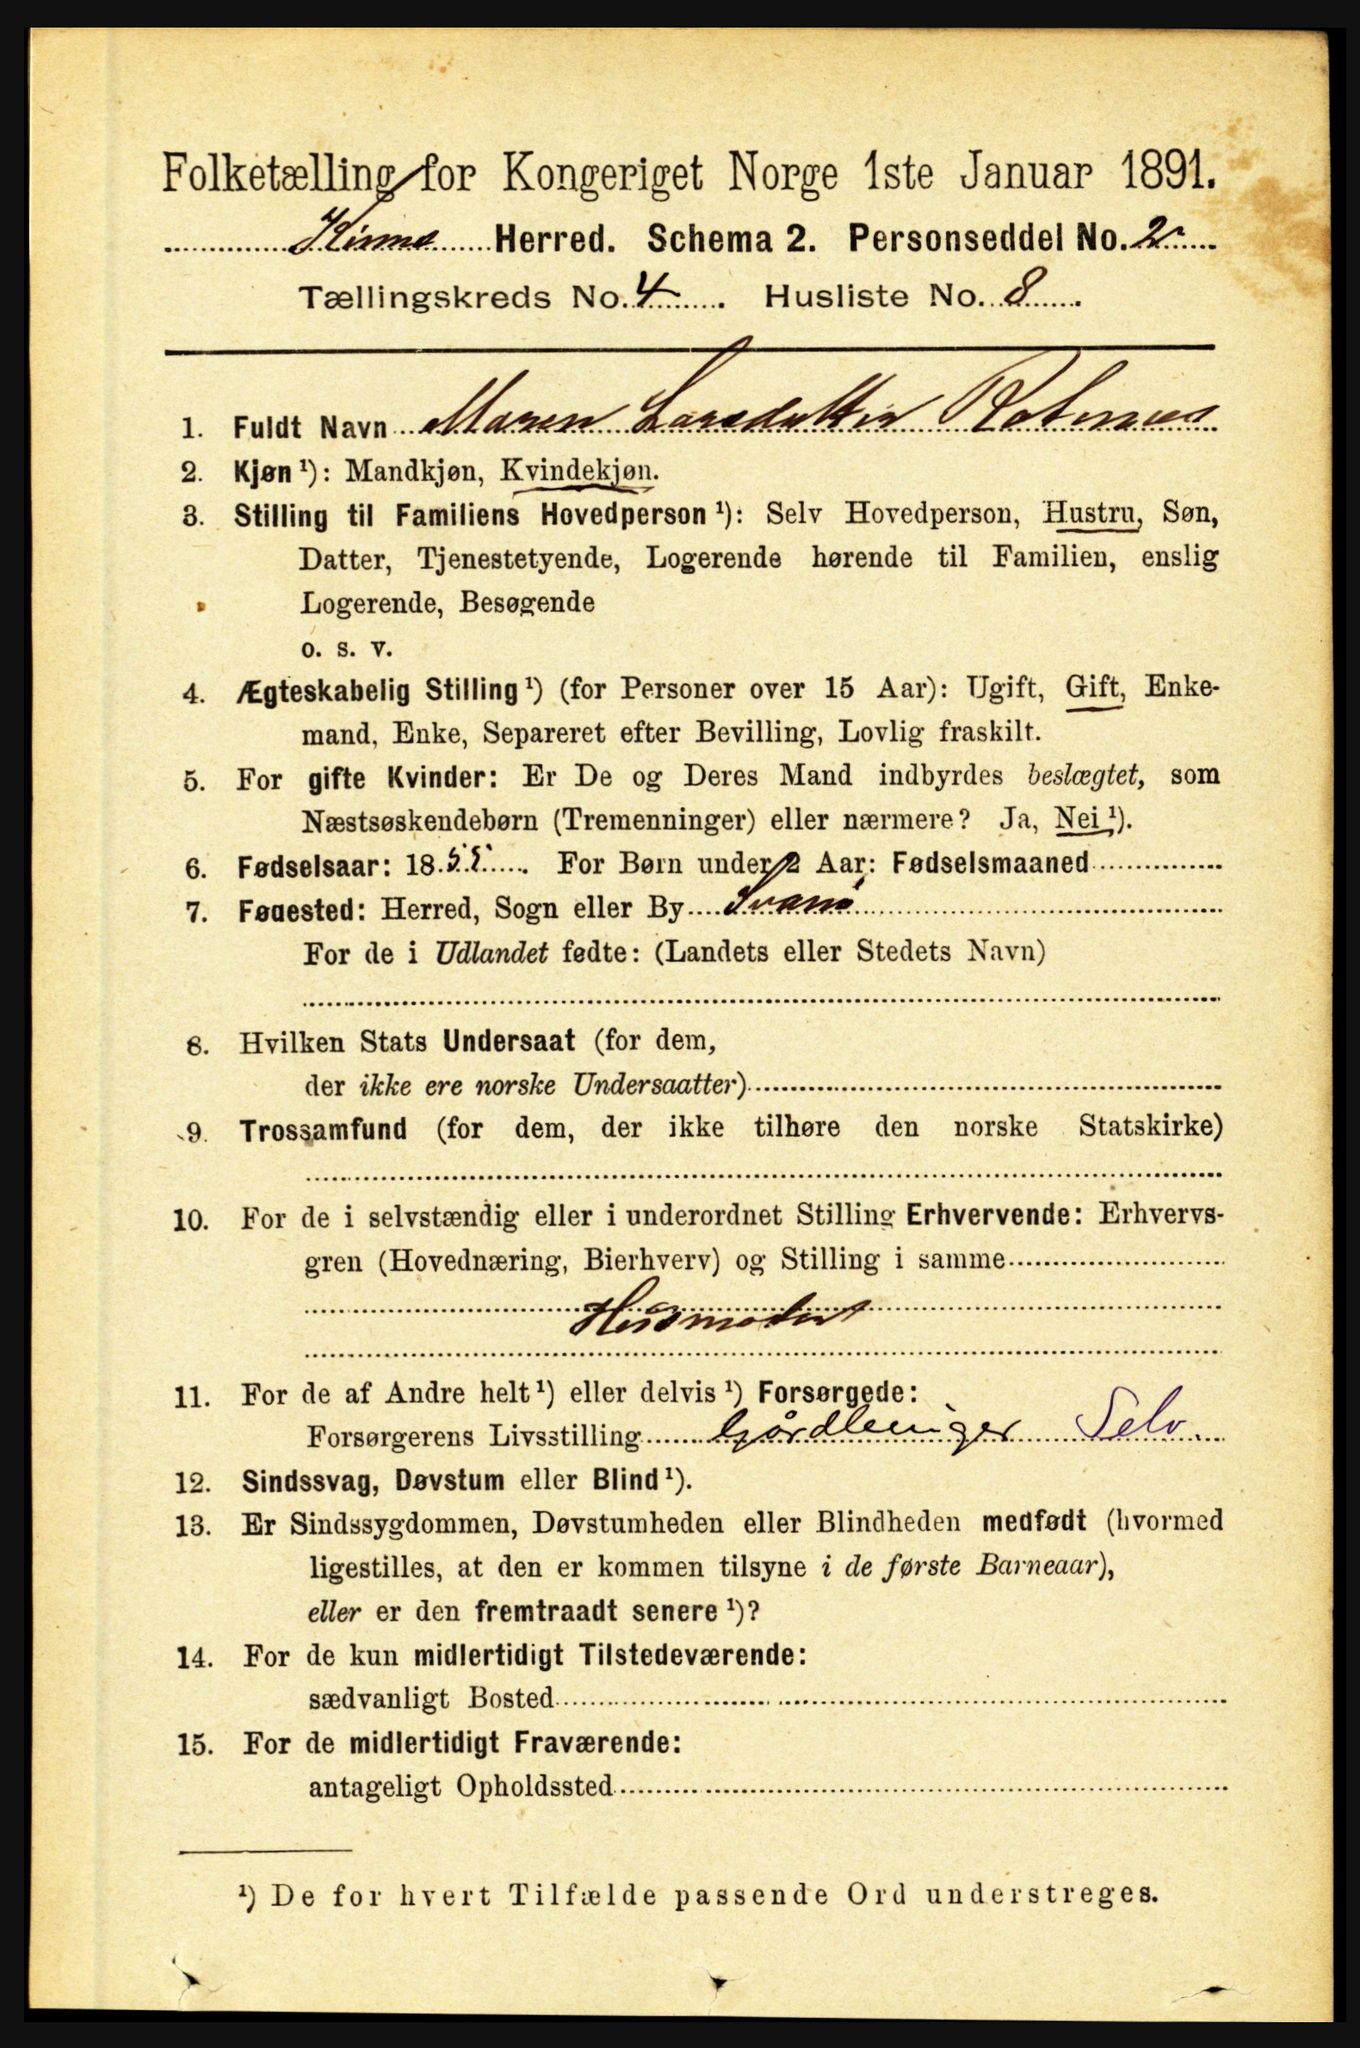 Folketælling for Kongeriget Norge 1ste Januar 1891.
Kinns Herred. Schema 2. Personseddel No. 2
Tællingskreds No. 4. Husliste No. 8.
1. Fuldt Navn Maren Larsdatter
2. Kjøn ¹): Mandkjøn, Kvindekjøn.
3. Stilling til Familiens Hovedperson ¹): Selv Hovedperson, Hustru, Søn,
Datter, Tjenestetyende, Logerende hørende til Familien, enslig
Logerende, Besøgende
o. s. v.
4. Ægteskabelig Stilling ¹) (for Personer over 15 Aar): Ugift, Gift, Enke-
mand, Enke, Separeret efter Bevilling, Lovlig fraskilt.
5. For gifte Kvinder: Er De og Deres Mand indbyrdes beslægtet, som
Næstsøskendebørn (Tremenninger) eller nærmere? Ja, Nei ¹).
6. Fødselsaar: 18 . For Børn under 2 Aar: Fødselsmaaned
7. Fødested: Herred, Sogn eller By Svanø
For de i Udlandet fødte: (Landets eller Stedets Navn)
8. Hvilken Stats Undersaat (for dem,
der ikke ere norske Undersaatter)
9. Trossamfund (for dem, der ikke tilhøre den norske Statskirke)
10. For de i selvstændig eller i underordnet Stilling Erhvervende: Erhvervs-
gren (Hovednæring, Bierhverv) og Stilling i samme
Husmoder
11. For de af Andre helt ¹) eller delvis ¹) Forsørgede:
Forsørgerens Livsstilling Gårdbruger Selv.
12. Sindssvag, Døvstum eller Blind ¹).
13. Er Sindssygdommen, Døvstumheden eller Blindheden medfødt (hvormed
ligestilles, at den er kommen tilsyne i de første Barneaar),
eller er den fremtraadt senere ¹)?
14. For de kun midlertidigt Tilstedeværende:
sædvanligt Bosted
15. For de midlertidigt Fraværende:
antageligt Opholdssted
¹) De for hvert Tilfælde passende Ord understreges.